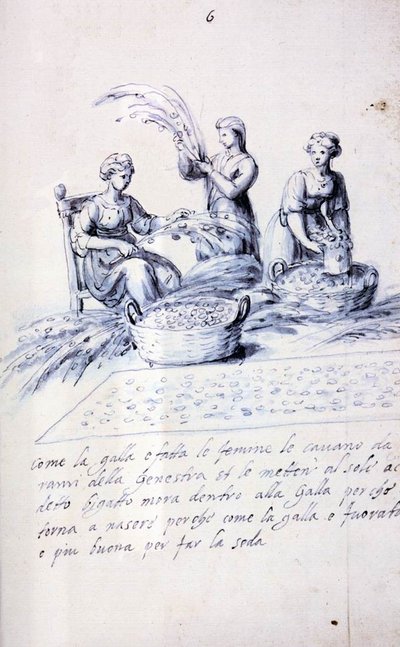 6
come la galla e fatta le femme le cavano da
ranni della Genestra et le metten al sole ac
detto bigatto mora dentro alla Galla perche
torna a nasere perche come la galla e fuorat
e piu buona per far la seda